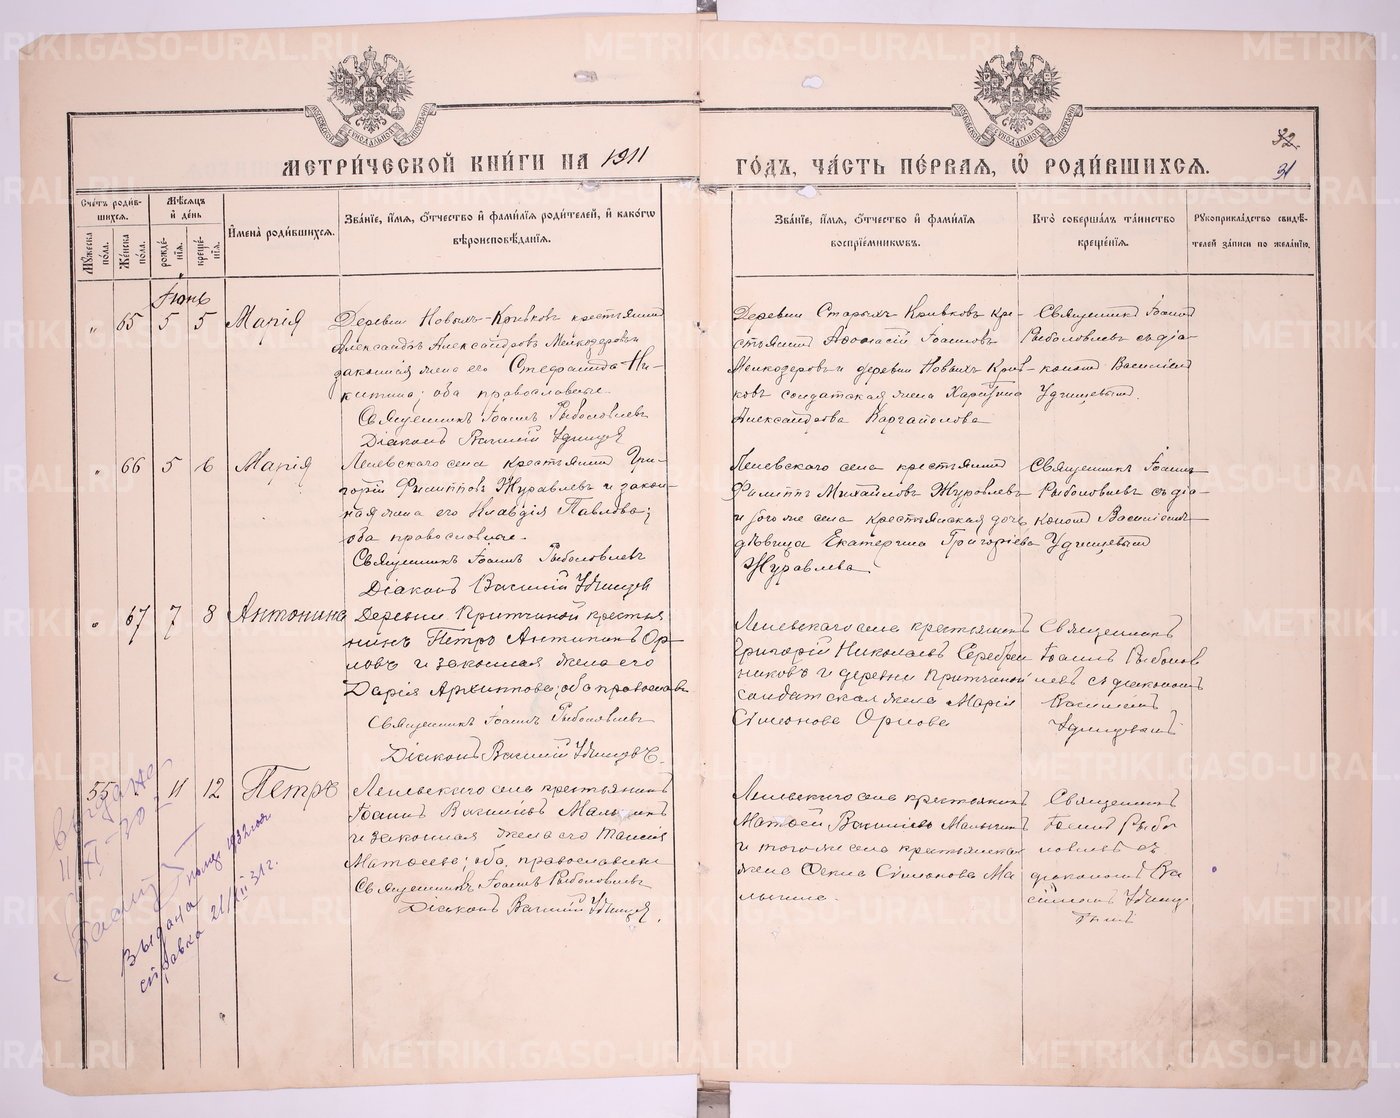 МЕТРИ́ЧЕСКОЙ КНИ́ГИ НА 1911
ГО́ДЪ, ЧА́СТЬ ПЕ́РВАЯ, Ѡ҆ РОДИ́ВШИХСѦ.
32.
31
Сче́тъ роди́в-
шихсѧ.
Мѣ́сѧцъ
и҆ де́нь
Му́жеска
по́ла.
Же́нска
по́ла.
рожде́-
нїѧ.
креще́-
нїѧ.
И҆мена̀ роди́вшихсѧ.
Зва́нїе, и҆́мѧ, ѻ҆́тчество и҆ фами́лїѧ роди́телей, и҆ како́гѡ
вѣроисповѣ́данїѧ.
Зва́нїе, и҆́мѧ, ѻ҆́тчество и҆ фами́лїѧ
воспрїе́мникѡвъ.
Кто̀ соверша́лъ та́инство
креще́нїѧ.
Рꙋкоприкла́дство свидѣ́-
телей за́писи по жела́нїю.
Іюнь
" 65 5 5 Марія
Деревни Новыхъ-Кривковъ крестьянинъ
Александръ Александровъ
законная жена его Стефанида Ни-
китина; оба православные.
Священникъ Іоаннъ Рыболовлевъ
Діаконъ Василій Удинцев
Деревни Старыхъ Кривковъ кре-
стьянинъ Іоанновъ
и деревни Новыхъ Крив-
ковъ солдатская жена Харитина
Александрова Варгаполова
Священникъ Іоаннъ
Рыболовлевъ съ діа-
кономъ Василіемъ
Удинцевымъ.
" 66 5 6 Марія
села крестьянинъ Гри-
горій Филипповъ Журавлевъ и закон-
ная жена его Клавдія Павлова;
оба православные.
Священникъ Іоаннъ Рыболовлевъ
Діаконъ Василій Удинцев
села крестьянинъ
Филиппъ Михайловъ Журавлевъ
и того же села крестьянская дочь
дѣвица Екатерина Григоріева
Журавлева.
Священникъ Іоаннъ
Рыболовлевъ съ діа-
кономъ Василіемъ
Удинцевымъ
" 67 7 8 Антонина
Деревни Притчиной крестья
нинъ Петръ Антипинъ Ор
ловъ и законная жена его
Дарія Архиппова; оба православн
Священникъ Іоаннъ Рыболовлевъ
Діаконъ Василій Удинцевъ.
села крестьянинъ
Григорій Николаевъ Серебрен
никовъ и деревни Притчиной
солдатская жена Марія
Сѵмеонова Орлова
Священникъ
Іоаннъ Рыболов
левъ съ діакономъ
Василіемъ
Удинцевымъ
55 11 12 Петръ
села крестьянинъ
Іоаннъ Василіевъ Малыгинъ
и законная жена его Таисія
Матѳеева; оба православны
Священникъ Іоаннъ Рыболовлевъ
Діаконъ Василій Удинцев.
села крестьянинъ
Матѳей Василіевъ Малыгинъ
и того же села крестьянская
жена Ѳекла Сѵмеонова Ма
лыгина.
Священникъ
Іоаннъ Рыбо
ловлевъ съ
діакономъ Ва
силіемъ Удинце
вымъ
Выдано
11
Выдана
справка 21/XII 31 г.
METRIKI.GASO-URAL.RU